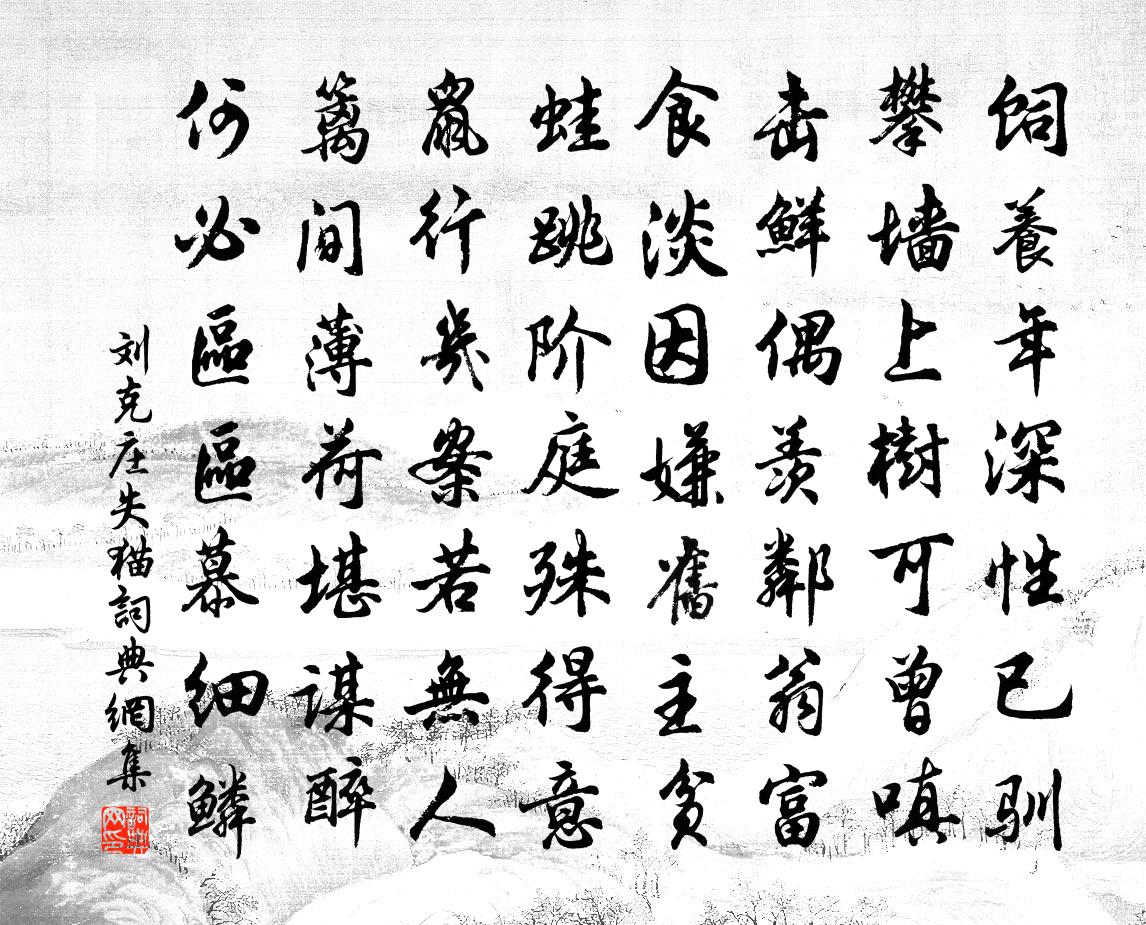 饲養年深性已驯
攀墙上樹可曾嗔
击鲜偶羡鄰翁富
食淡因嫌舊主贫
蛙跳阶庭殊得意
鼠行幾案若無人
篱间薄荷堪谋醉
何必區區慕细鳞
刘克庄失猫詞典網集